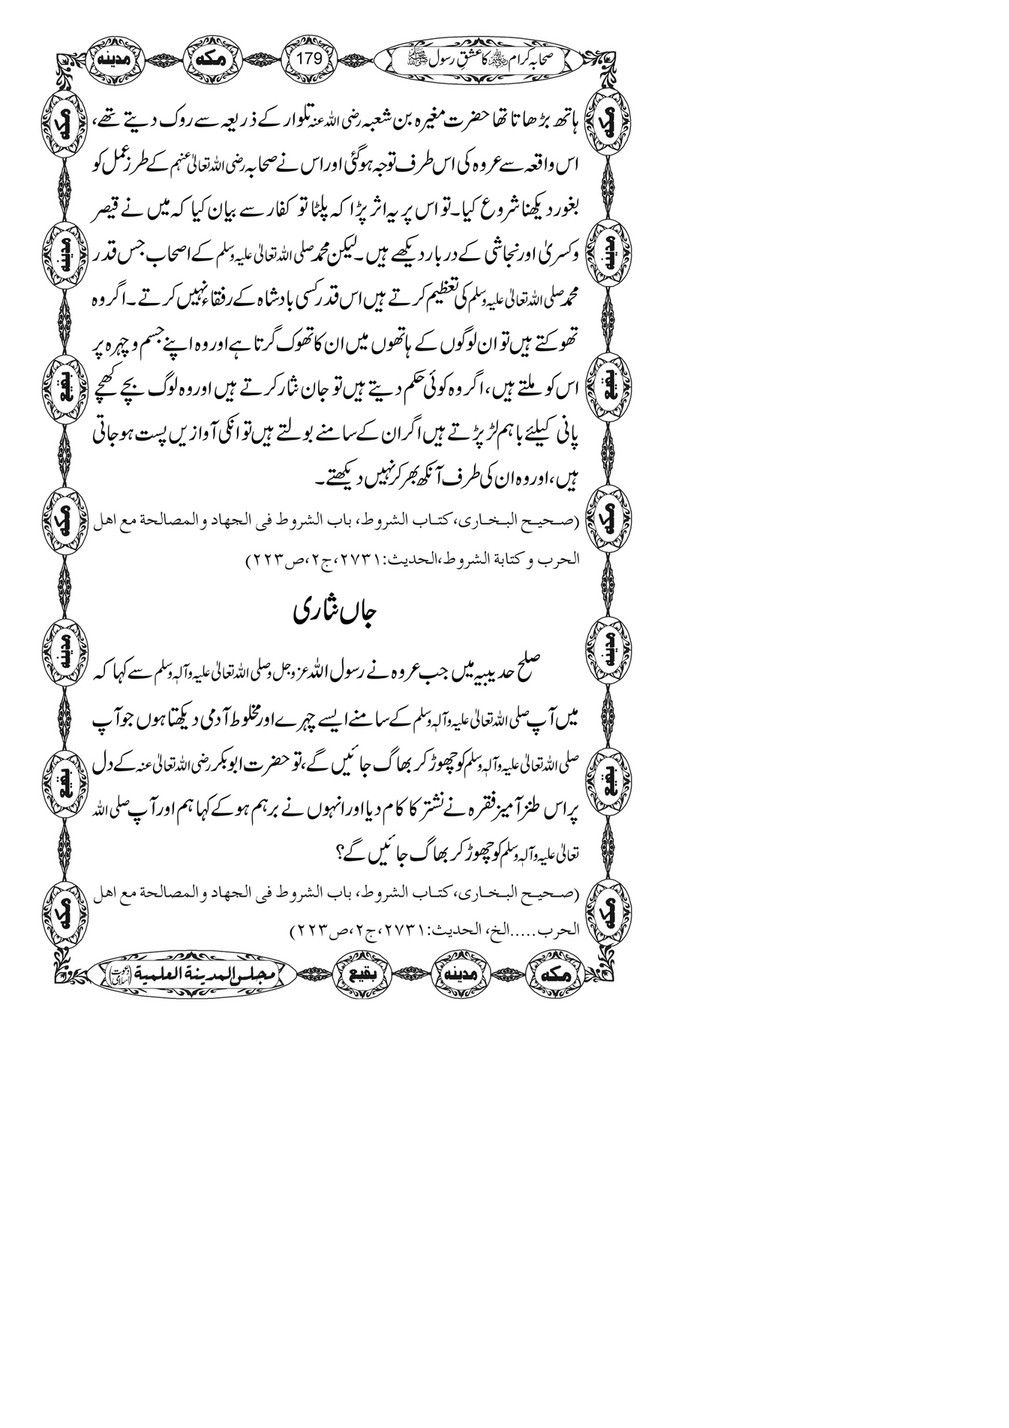 صحابہ کرام ﷢ کا عشق رسول ﷺ
179
مکہ
مدینہ
ہاتھ بڑھاتا تھا حضرت مغیرہ بن شعبہ رضی اللہ عنہ تلوار کے ذریعہ سے روک دیتے تھے،
اس واقعہ سے عروہ کی اس طرف توجہ ہوگئی اور اس نے صحابہ رضی اللہ تعالیٰ عنہم کے طرز عمل کو
بغور دیکھنا شروع کیا۔ تو اس پر یہ اثر پڑا کہ پلٹا تو کفار سے بیان کیا کہ میں نے قیصر
و کسریٰ اور نجاشی کے دربار دیکھے ہیں۔ لیکن محمد صلی اللہ تعالیٰ علیہ وسلم کے اصحاب جس قدر
محمد صلی اللہ تعالیٰ علیہ وسلم کی تعظیم کرتے ہیں اس قدر کسی بادشاہ کے رفقاء نہیں کرتے۔ اگر وہ
تھوکتے ہیں تو ان لوگوں کے ہاتھوں میں ان کا تھوک گرتا ہے اور وہ اپنے جسم و چہرہ پر
اس کو ملتے ہیں، اگر وہ کوئی حکم دیتے ہیں تو جان نثار کرتے ہیں اور وہ لوگ بچے کھچے
پانی کیلئے باہم لڑ پڑتے ہیں اگر ان کے سامنے بولتے ہیں تو انکی آوازیں پست ہو جاتی
ہیں، اور وہ ان کی طرف آنکھ بھر کر نہیں دیکھتے۔
(صحیح البخاری،کتاب الشروط، باب الشروط فی الجهاد والمصالحة مع اهل
الحرب و کتابة الشروط،الحدیث:۲۷۳۱،ج۲،ص۲۲۳)
جاں نثاری
صلح حدیبیہ میں جب عروہ نے رسول اللہ عزوجل و صلی اللہ تعالیٰ علیہ وآلہ وسلم سے کہا کہ
میں آپ صلی اللہ تعالیٰ علیہ وآلہ وسلم کے سامنے ایسے چہرے اور مخلوط آدمی دیکھتا ہوں جو آپ
صلی اللہ تعالیٰ علیہ وآلہ وسلم کو چھوڑ کر بھاگ جائیں گے، تو حضرت ابوبکر رضی اللہ تعالیٰ عنہ کے دل
پر اس طنز آمیز فقرہ نے نشتر کا کام دیا اور انہوں نے برہم ہو کے کہا ہم اور آپ صلی اللہ
تعالیٰ علیہ وآلہ وسلم کو چھوڑ کر بھاگ جائیں گے؟
(صحیح البخاری،کتاب الشروط، باب الشروط فی الجهاد والمصالحة مع اهل
الحرب.....الخ، الحدیث:۲۷۳۱،ج۲،ص۲۲۳)
مکہ
مدینہ
بقیع
مکہ
مدینہ
بقیع
مکہ
مکہ
مدینہ
بقیع
مکہ
مدینہ
بقیع
مکہ
مکہ
مدینہ
بقیع
مجلس المدینة العلمیة (دعوت اسلامی)